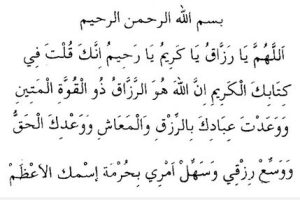 بسم الله الرحمن الرحيم
اَللَّهُمَّ يَا رَزَّاقُ يَا كَرِيمُ يَا رَحِيمُ إِنَّكَ قُلْتَ فِي
كِتَابِكَ الْكَرِيمِ اِنَّ اللهَ هُوَ الرَّزَّاقُ ذُو الْقُوَّةِ الْمَتِينِ
وَوَعَدْتَ عِبَادِكَ بِالرِّزْقِ وَالْمَعَاشِ وَوَعْدِكَ الْحَقُّ
وَوَسِّعْ رِزْقِي وَسَهِّلْ اَمْرِي بِحُرْمَةِ إِسْمِكَ الأَعْظَمْ